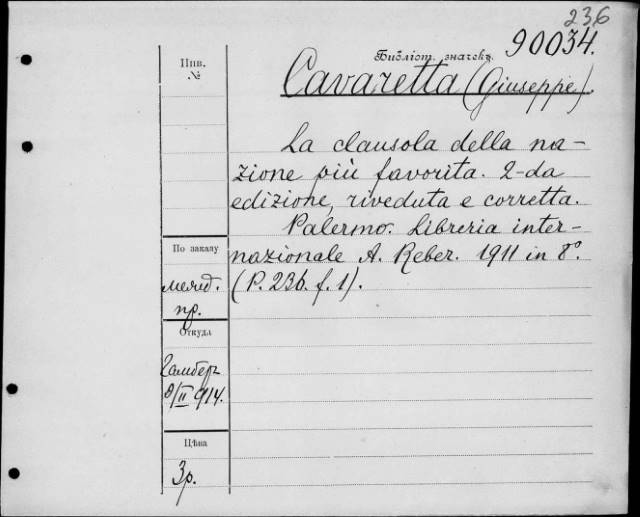 236
90034.
Библіот. значекъ.
Cavaretta (Giuseppe).
Инв.
№
La clausola della na-
zione più favorita. 2-da
edizione, riveduta e corretta.
Palermo. Libreria inter-
nazionale A. Reber. 1911 in 8°.
(P. 236. f. 1).
По заказу
межд.
пр.
Откуда
Гамберъ
8/II 914.
Цѣна
3р.